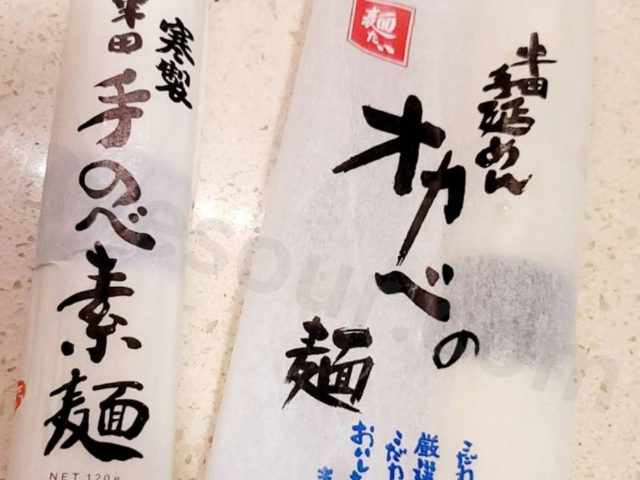 寒製
半田
手のべ
素麺
NET 120g
麺
たい
半田
手延めん
オカベの
麺
こだわ
厳選
こだわ
おいし